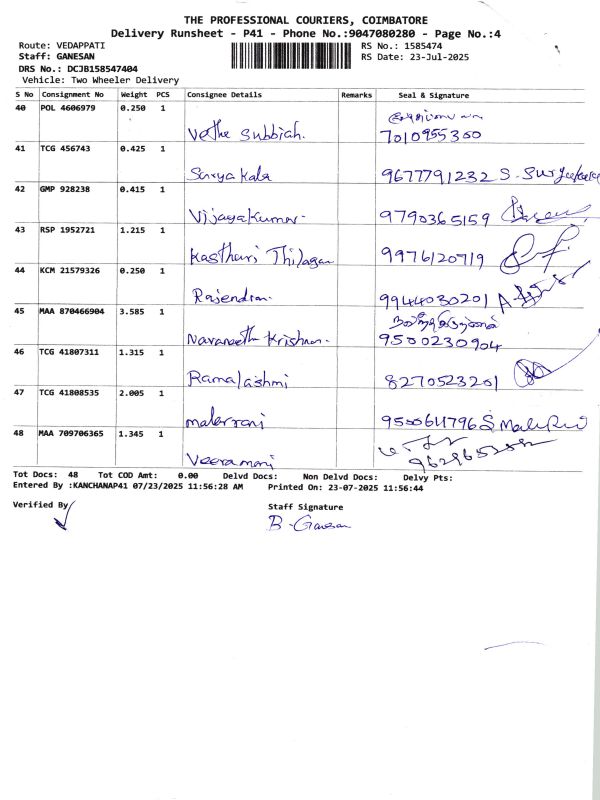 THE PROFESSIONAL COURIERS, COIMBATORE
Delivery Runsheet - P41 - Phone No.:9047080280 - Page No.:4
Route: VEDAPPATI RS No.: 1585474
Staff: GANESAN RS Date: 23-Jul-2025
DRS No.: DCJB158547404
Vehicle: Two Wheeler Delivery
S No Consignment No Weight PCS Consignee Details Remarks Seal & Signature
40 POL 4606979 0.250 1
Vethe Subbiah. 7010955300
41 TCG 456743 0.425 1
Suryakala 9677791232 S.
42 GMP 928238 0.415 1
Vijayakumar. 9790365159
43 RSP 1952721 1.215 1
Kasthuri Thilagan 9976120719
44 KCM 21579326 0.250 1
Rajendran. 9944030201
45 MAA 870466904 3.585 1
Navaneeth Krishnan. 9500230904
46 TCG 41807311 1.315 1
Ramalashmi 8270523201
47 TCG 41808535 2.005 1
malarrani 9500611796
48 MAA 709706365 1.345 1
Veeramani 962965282
Tot Docs: 48 Tot COD Amt: 0.00 Delvd Docs: Non Delvd Docs: Delvy Pts:
Entered By :KANCHANAP41 07/23/2025 11:56:28 AM Printed On: 23-07-2025 11:56:44
Verified By Staff Signature
B. Ganesan